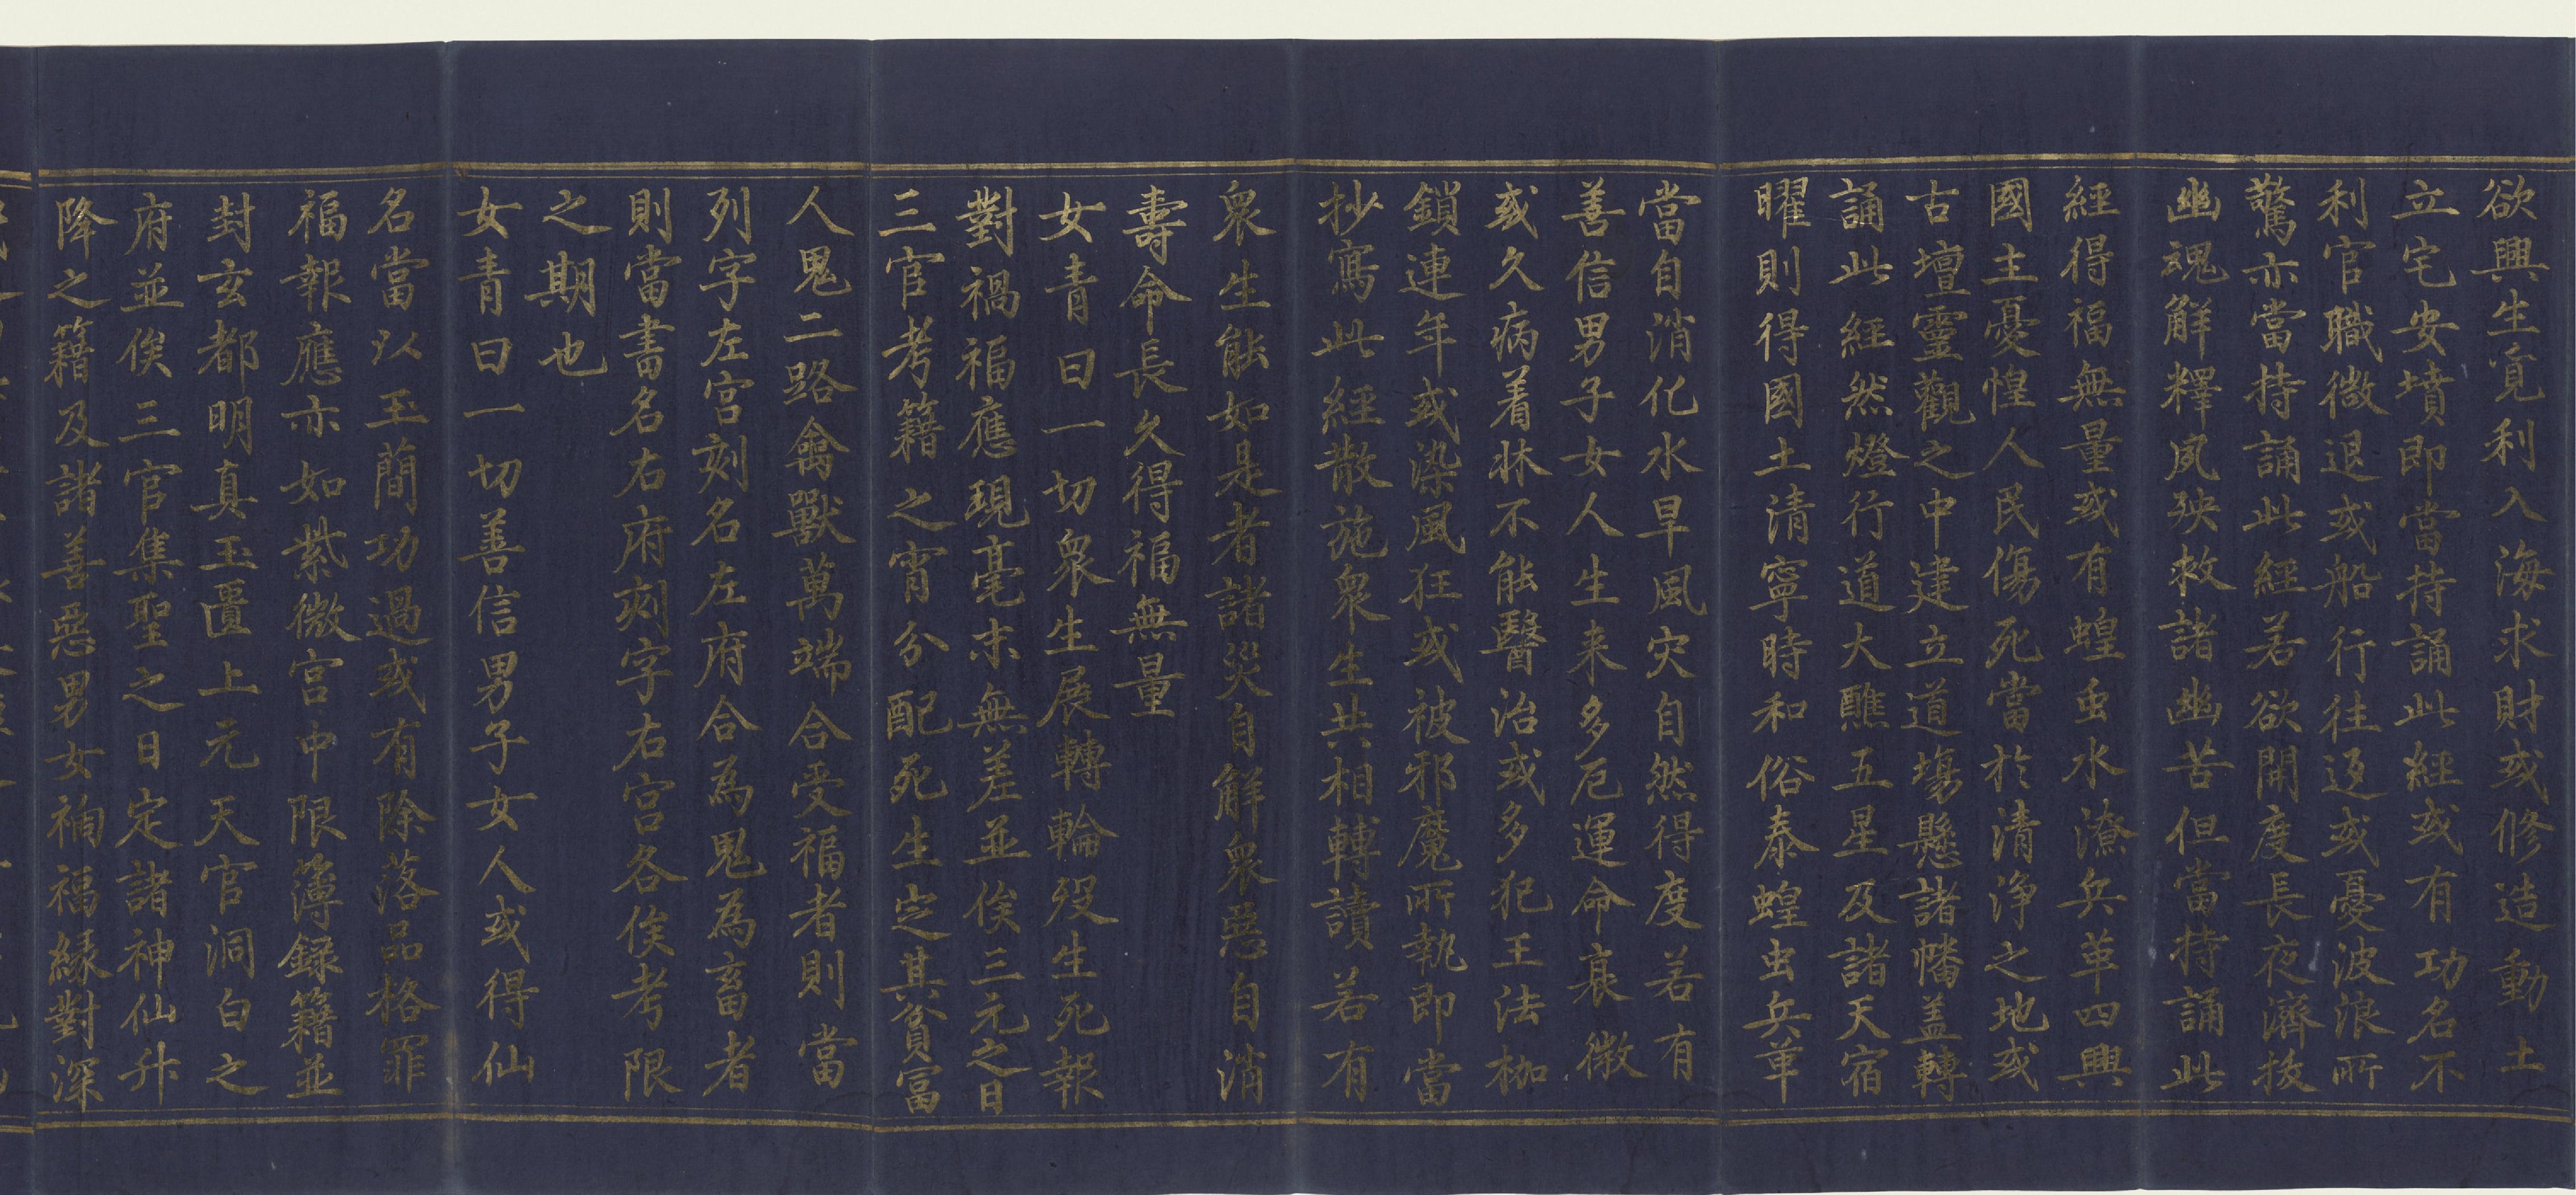 欲興生寛利入海求財或修造動土
立宅安墳即當持誦此經或有功名不
利官職微退或船行往返或憂波浪所
驚亦當持誦此經若欲開度長夜濟拔
幽魂解釋夙殃救諸幽苦但當持誦此
經得福無量或有蝗虫水潦兵革四興
國主憂惶人民傷死當於清淨之地或
古壇靈觀之中建立道場懸諸幡盖轉
誦此經然燈行道大醮五星及諸天宿
曜則得國土清寧時和俗泰蝗虫兵革
當自消化水旱風灾自然得度若有
善信男子女人生来多厄運命衰微
或久病着牀不能醫治或多犯王法枷
鎖連年或染風狂或被邪魔所執即當
抄寫此經散施衆生共相轉讀若有
衆生能如是者諸災自解衆惡自消
壽命長久得福無量
女青曰一切衆生展轉輪殁生死報
對禍福應現毫末無差並俟三元之日
三官考籍之宵分配死生定其貧富
人鬼二路禽獸萬端合受福者則當
列字左宮刻名左府合為鬼為畜者
則當書名右府刻字右宮各俟考限
之期也
女青曰一切善信男子女人或得仙
名當以玉簡功過或有除落品格罪
福報應亦如紫微宮中限簿録籍並
封玄都明真玉匱上元天官洞白之
府並俟三官集聖之日定諸神仙升
降之籍及諸善惡男女禍福緣對深